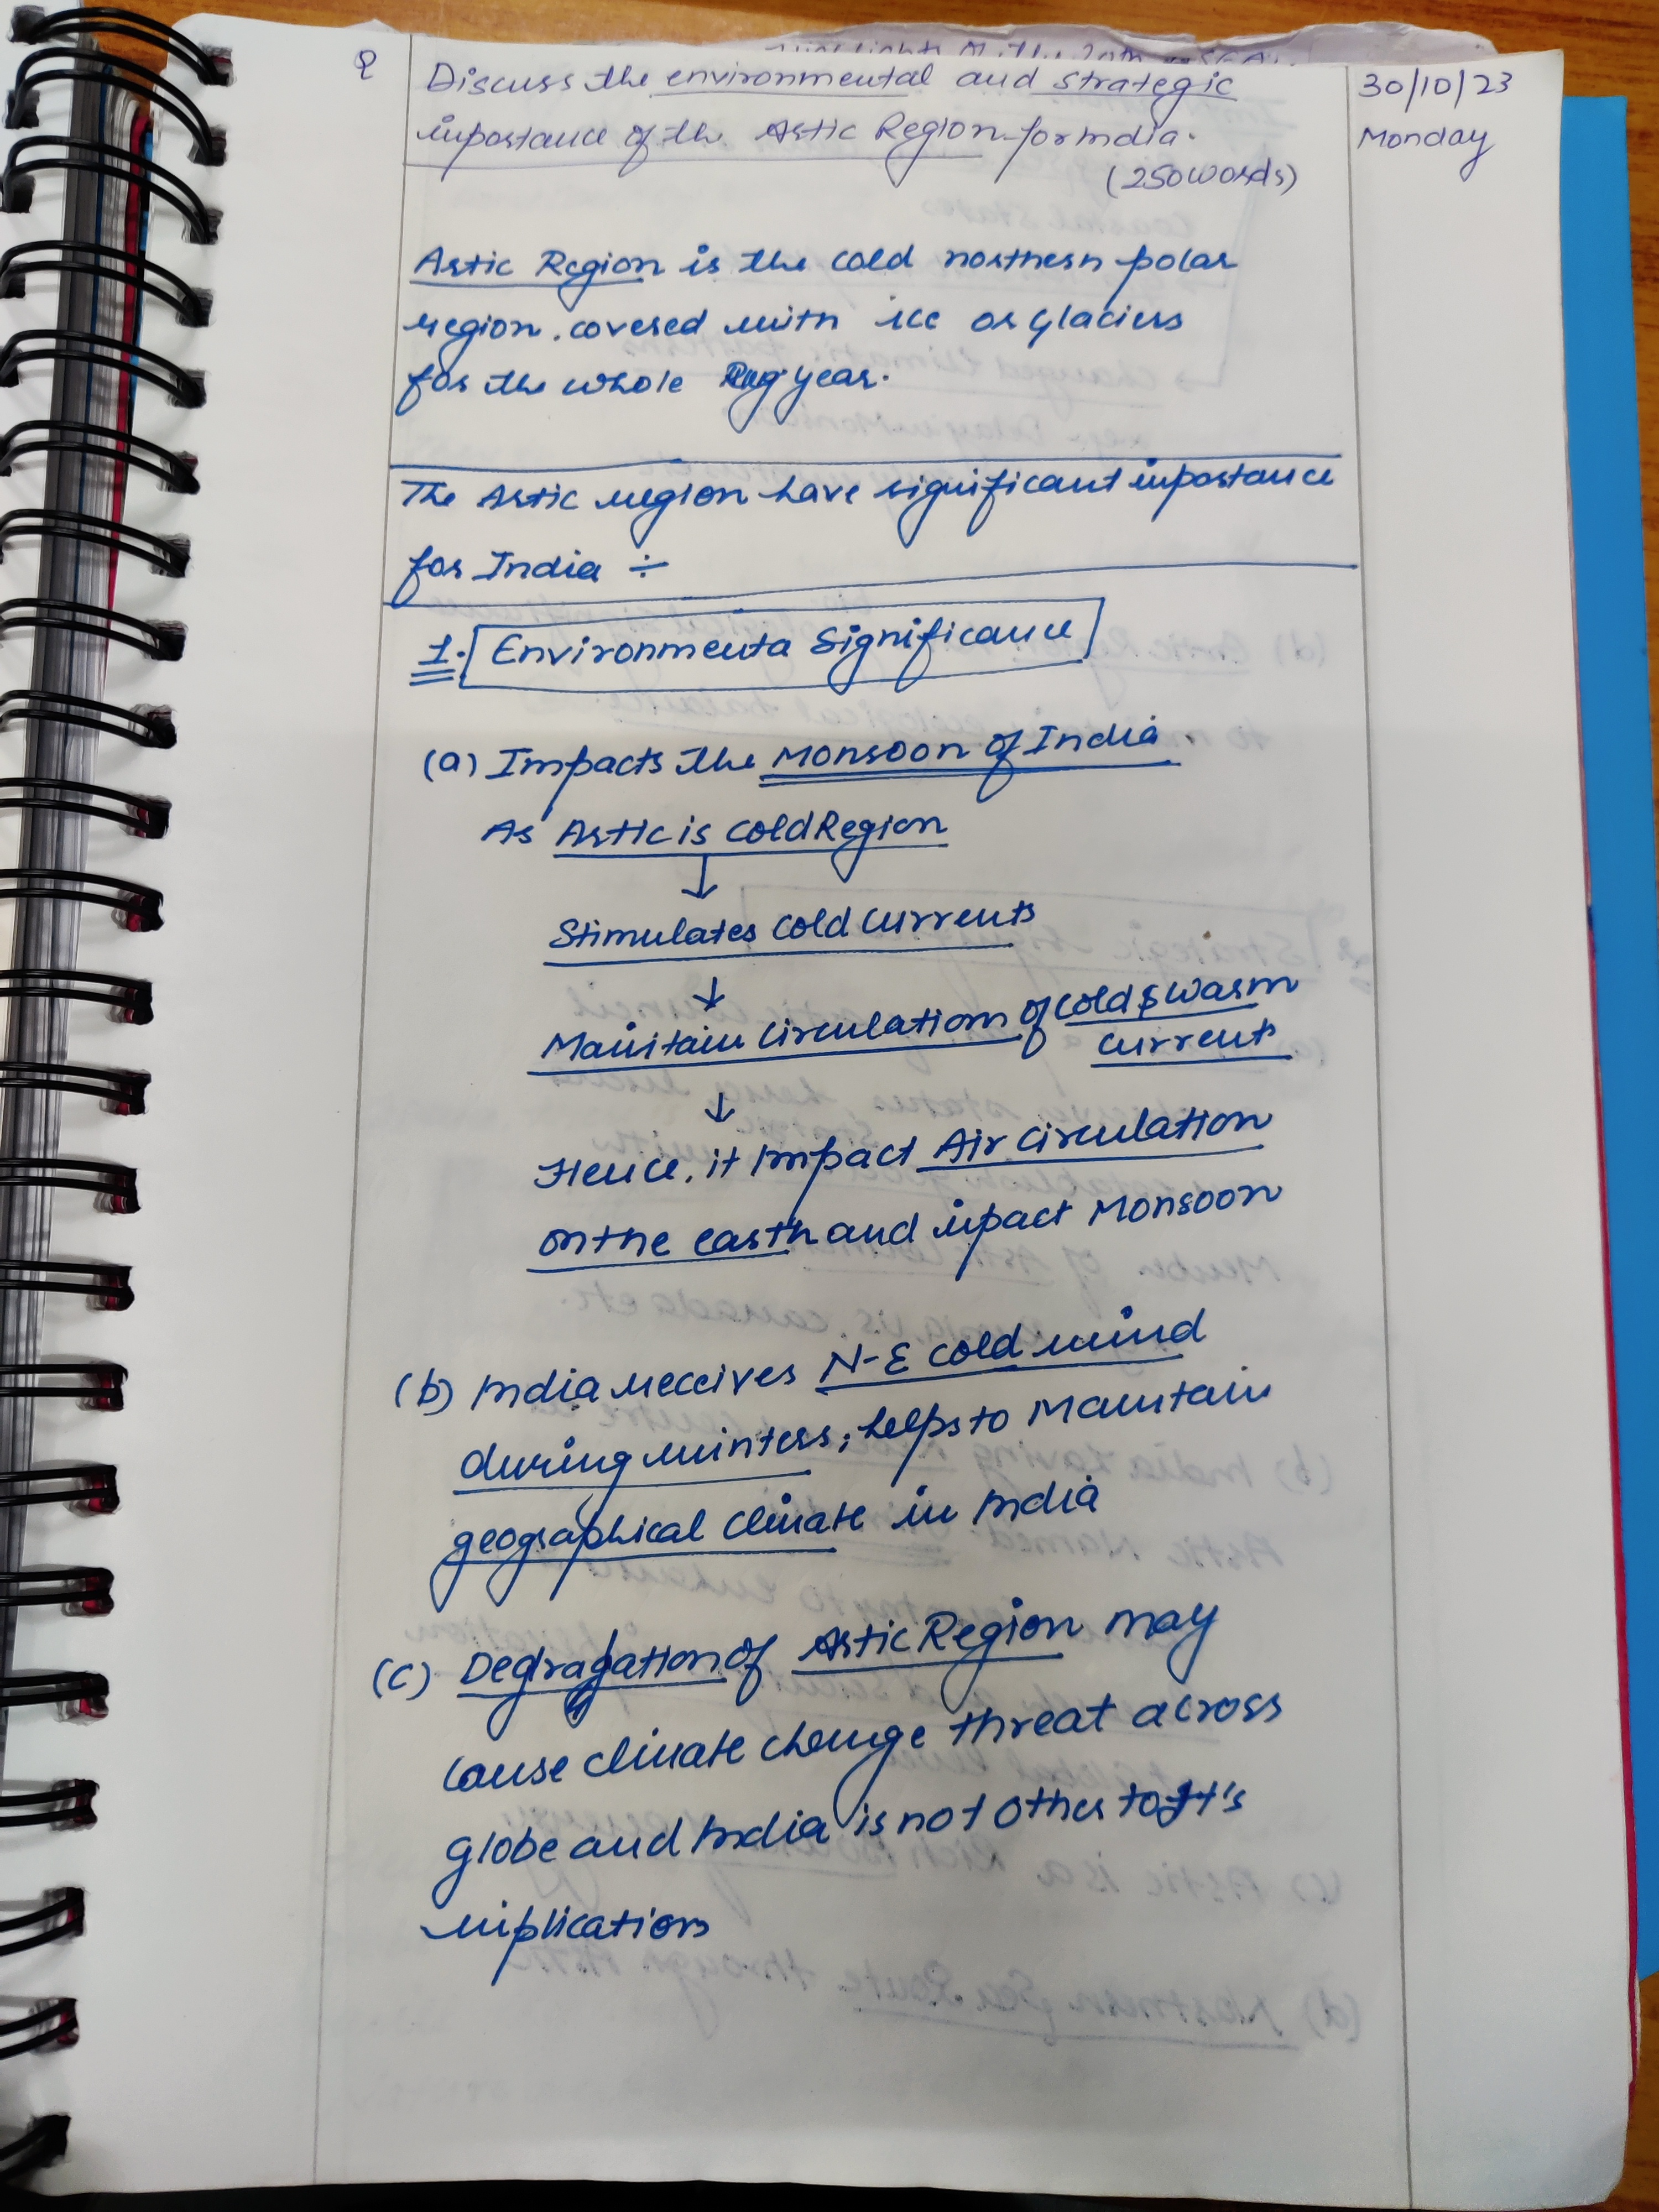 Q
Discuss the environmental and strategic
importance of the Arctic Region for India.
(250 words)
30/10/23
Monday
Artic Region is the cold northern polar
region. covered with ice or glaciers
for the whole year.
The Artic region have significant importance
for India ÷
1. Environmenta Significance
(a) Impacts the Monsoon of India.
As Artic is cold Region
↓
Stimulates cold currents
↓
Maintain circulation of cold & warm
current
↓
Hence, it impact Air circulation
on the earth and impact Monsoon
(b) India receives N-E cold wind
during winters; helps to Maintain
geographical climate in India
(c) Degradation of Artic Region may
cause climate change threat across
globe and India is not other to It's
implication